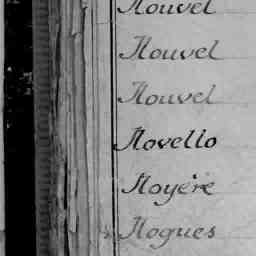 Nouvel
Nouvel
Nouvel
Novello
Noyère
Nogues